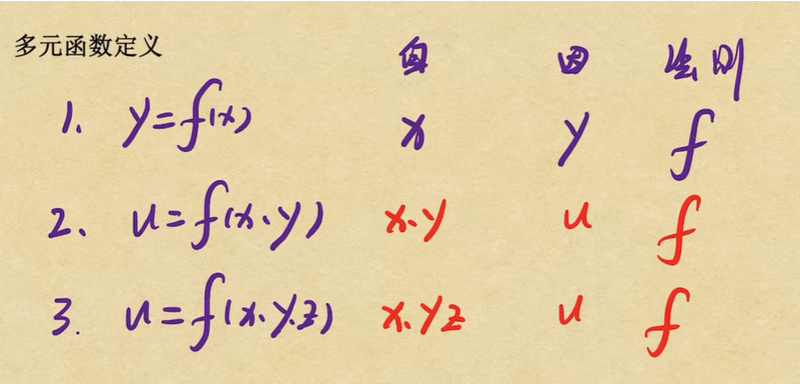 多元函数定义
自 因 法则
1. y=f(x) x y f
2、 u=f(x、y) x、y u f
3. u=f(x、y、z) x、y z u f